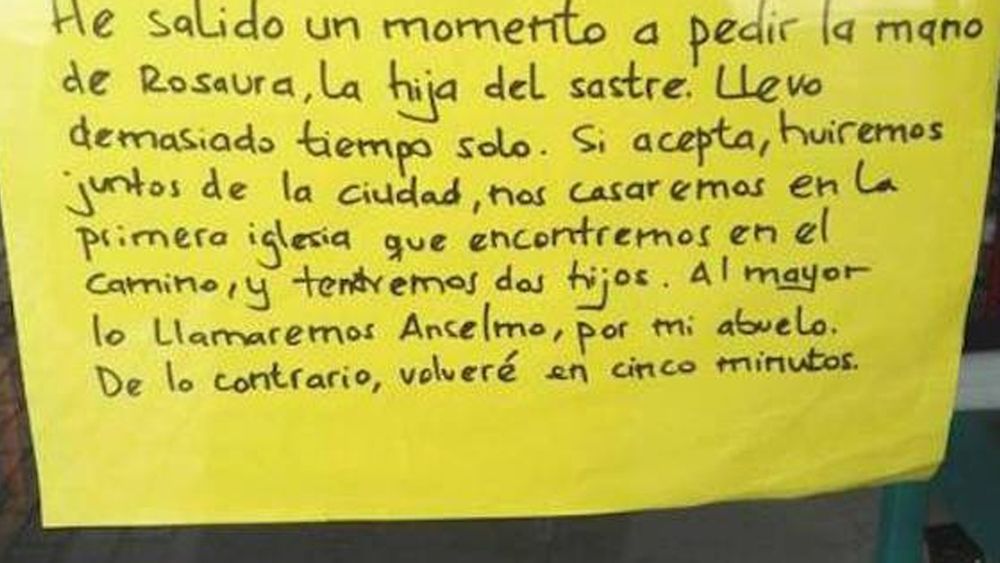 He salido un momento a pedir la mano
de Rosaura, la hija del sastre. Llevo
demasiado tiempo solo. Si acepta, huiremos
juntos de la ciudad, nos casaremos en la
primera iglesia que encontremos en el
camino, y tendremos dos hijos. Al mayor
lo llamaremos Anselmo, por mi abuelo.
De lo contrario, volveré en cinco minutos.